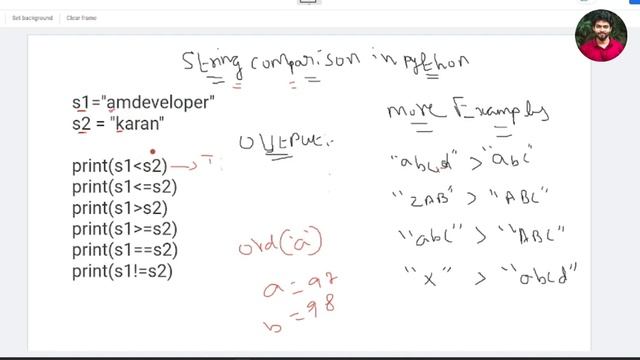 Set background Clear frame
String comparison in python
s1="amdeveloper"
s2 = "karan"
print(s1<s2) → T
print(s1<=s2)
print(s1>s2)
print(s1>=s2)
print(s1==s2)
print(s1!=s2)
OUTPUT:
ord('a')
a = 97
b = 98
More Examples
"abcd" > "abc"
"ZAB" > "ABC"
"abc" > "ABC"
"x" > "abcd"